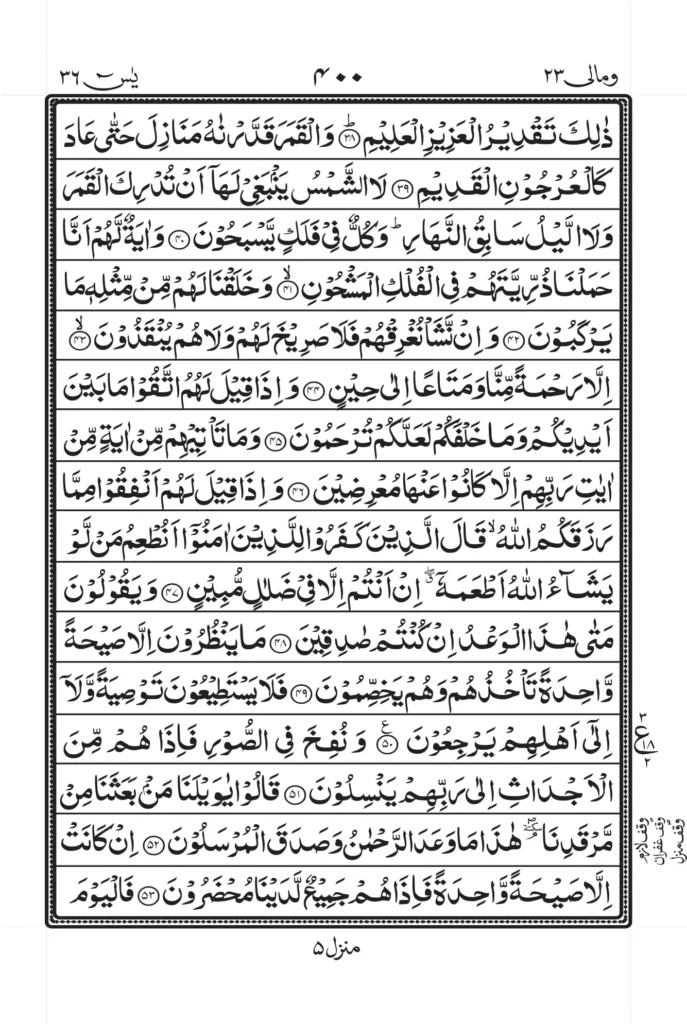 ومالی ۲۳
۴۰۰
یٰسٓ ۳۶
ذٰلِكَ تَقْدِيْرُ الْعَزِيْزِ الْعَلِيْمِ ؕ‏﴿۳۸﴾ وَالْقَمَرَ قَدَّرْنٰهُ مَنَازِلَ حَتّٰى عَادَ
كَالْعُرْجُوْنِ الْقَدِيْمِ ﴿۳۹﴾ لَا الشَّمْسُ يَنْۢبَغِىْ لَهَاۤ اَنْ تُدْرِكَ الْقَمَرَ
وَلَا الَّيْلُ سَابِقُ النَّهَارِ ؕ وَكُلٌّ فِىْ فَلَكٍ يَّسْبَحُوْنَ ﴿۴۰﴾ وَاٰيَةٌ لَّهُمْ اَنَّا
حَمَلْنَا ذُرِّيَّتَهُمْ فِى الْفُلْكِ الْمَشْحُوْنِ ۙ‏﴿۴۱﴾ وَخَلَقْنَا لَهُمْ مِّنْ مِّثْلِهٖ مَا
يَرْكَبُوْنَ ﴿۴۲﴾ وَاِنْ نَّشَاْ نُغْرِقْهُمْ فَلَا صَرِيْخَ لَهُمْ وَلَا هُمْ يُنْقَذُوْنَ ۙ‏﴿۴۳﴾
اِلَّا رَحْمَةً مِّنَّا وَمَتَاعًا اِلٰى حِيْنٍ ﴿۴۴﴾ وَاِذَا قِيْلَ لَهُمُ اتَّقُوْا مَا بَيْنَ
اَيْدِيْكُمْ وَمَا خَلْفَكُمْ لَعَلَّكُمْ تُرْحَمُوْنَ ﴿۴۵﴾ وَمَا تَاْتِيْهِمْ مِّنْ اٰيَةٍ مِّنْ
اٰيٰتِ رَبِّهِمْ اِلَّا كَانُوْا عَنْهَا مُعْرِضِيْنَ ﴿۴۶﴾ وَاِذَا قِيْلَ لَهُمْ اَنْفِقُوْا مِمَّا
رَزَقَكُمُ اللّٰهُ ۙ قَالَ الَّذِيْنَ كَفَرُوْا لِلَّذِيْنَ اٰمَنُوْۤا اَنُطْعِمُ مَنْ لَّوْ
يَشَآءُ اللّٰهُ اَطْعَمَهٗۤ ۖ اِنْ اَنْتُمْ اِلَّا فِىْ ضَلٰلٍ مُّبِيْنٍ ﴿۴۷﴾ وَيَقُوْلُوْنَ
مَتٰى هٰذَا الْوَعْدُ اِنْ كُنْتُمْ صٰدِقِيْنَ ﴿۴۸﴾ مَا يَنْظُرُوْنَ اِلَّا صَيْحَةً
وَّاحِدَةً تَاْخُذُهُمْ وَهُمْ يَخِصِّمُوْنَ ﴿۴۹﴾ فَلَا يَسْتَطِيْعُوْنَ تَوْصِيَةً وَّلَاۤ
اِلٰٓى اَهْلِهِمْ يَرْجِعُوْنَ ﴿۵۰﴾ع وَنُفِخَ فِى الصُّوْرِ فَاِذَا هُمْ مِّنَ
الْاَجْدَاثِ اِلٰى رَبِّهِمْ يَنْسِلُوْنَ ﴿۵۱﴾ قَالُوْا يٰوَيْلَنَا مَنْۢ بَعَثَنَا مِنْ
مَّرْقَدِنَا ۘ هٰذَا مَا وَعَدَ الرَّحْمٰنُ وَصَدَقَ الْمُرْسَلُوْنَ ﴿۵۲﴾ اِنْ كَانَتْ
اِلَّا صَيْحَةً وَّاحِدَةً فَاِذَا هُمْ جَمِيْعٌ لَّدَيْنَا مُحْضَرُوْنَ ﴿۵۳﴾ فَالْيَوْمَ
۳
ع ۱۸
۲
وقف لازم
وقف غفران
وقف منزل
منزل ۵